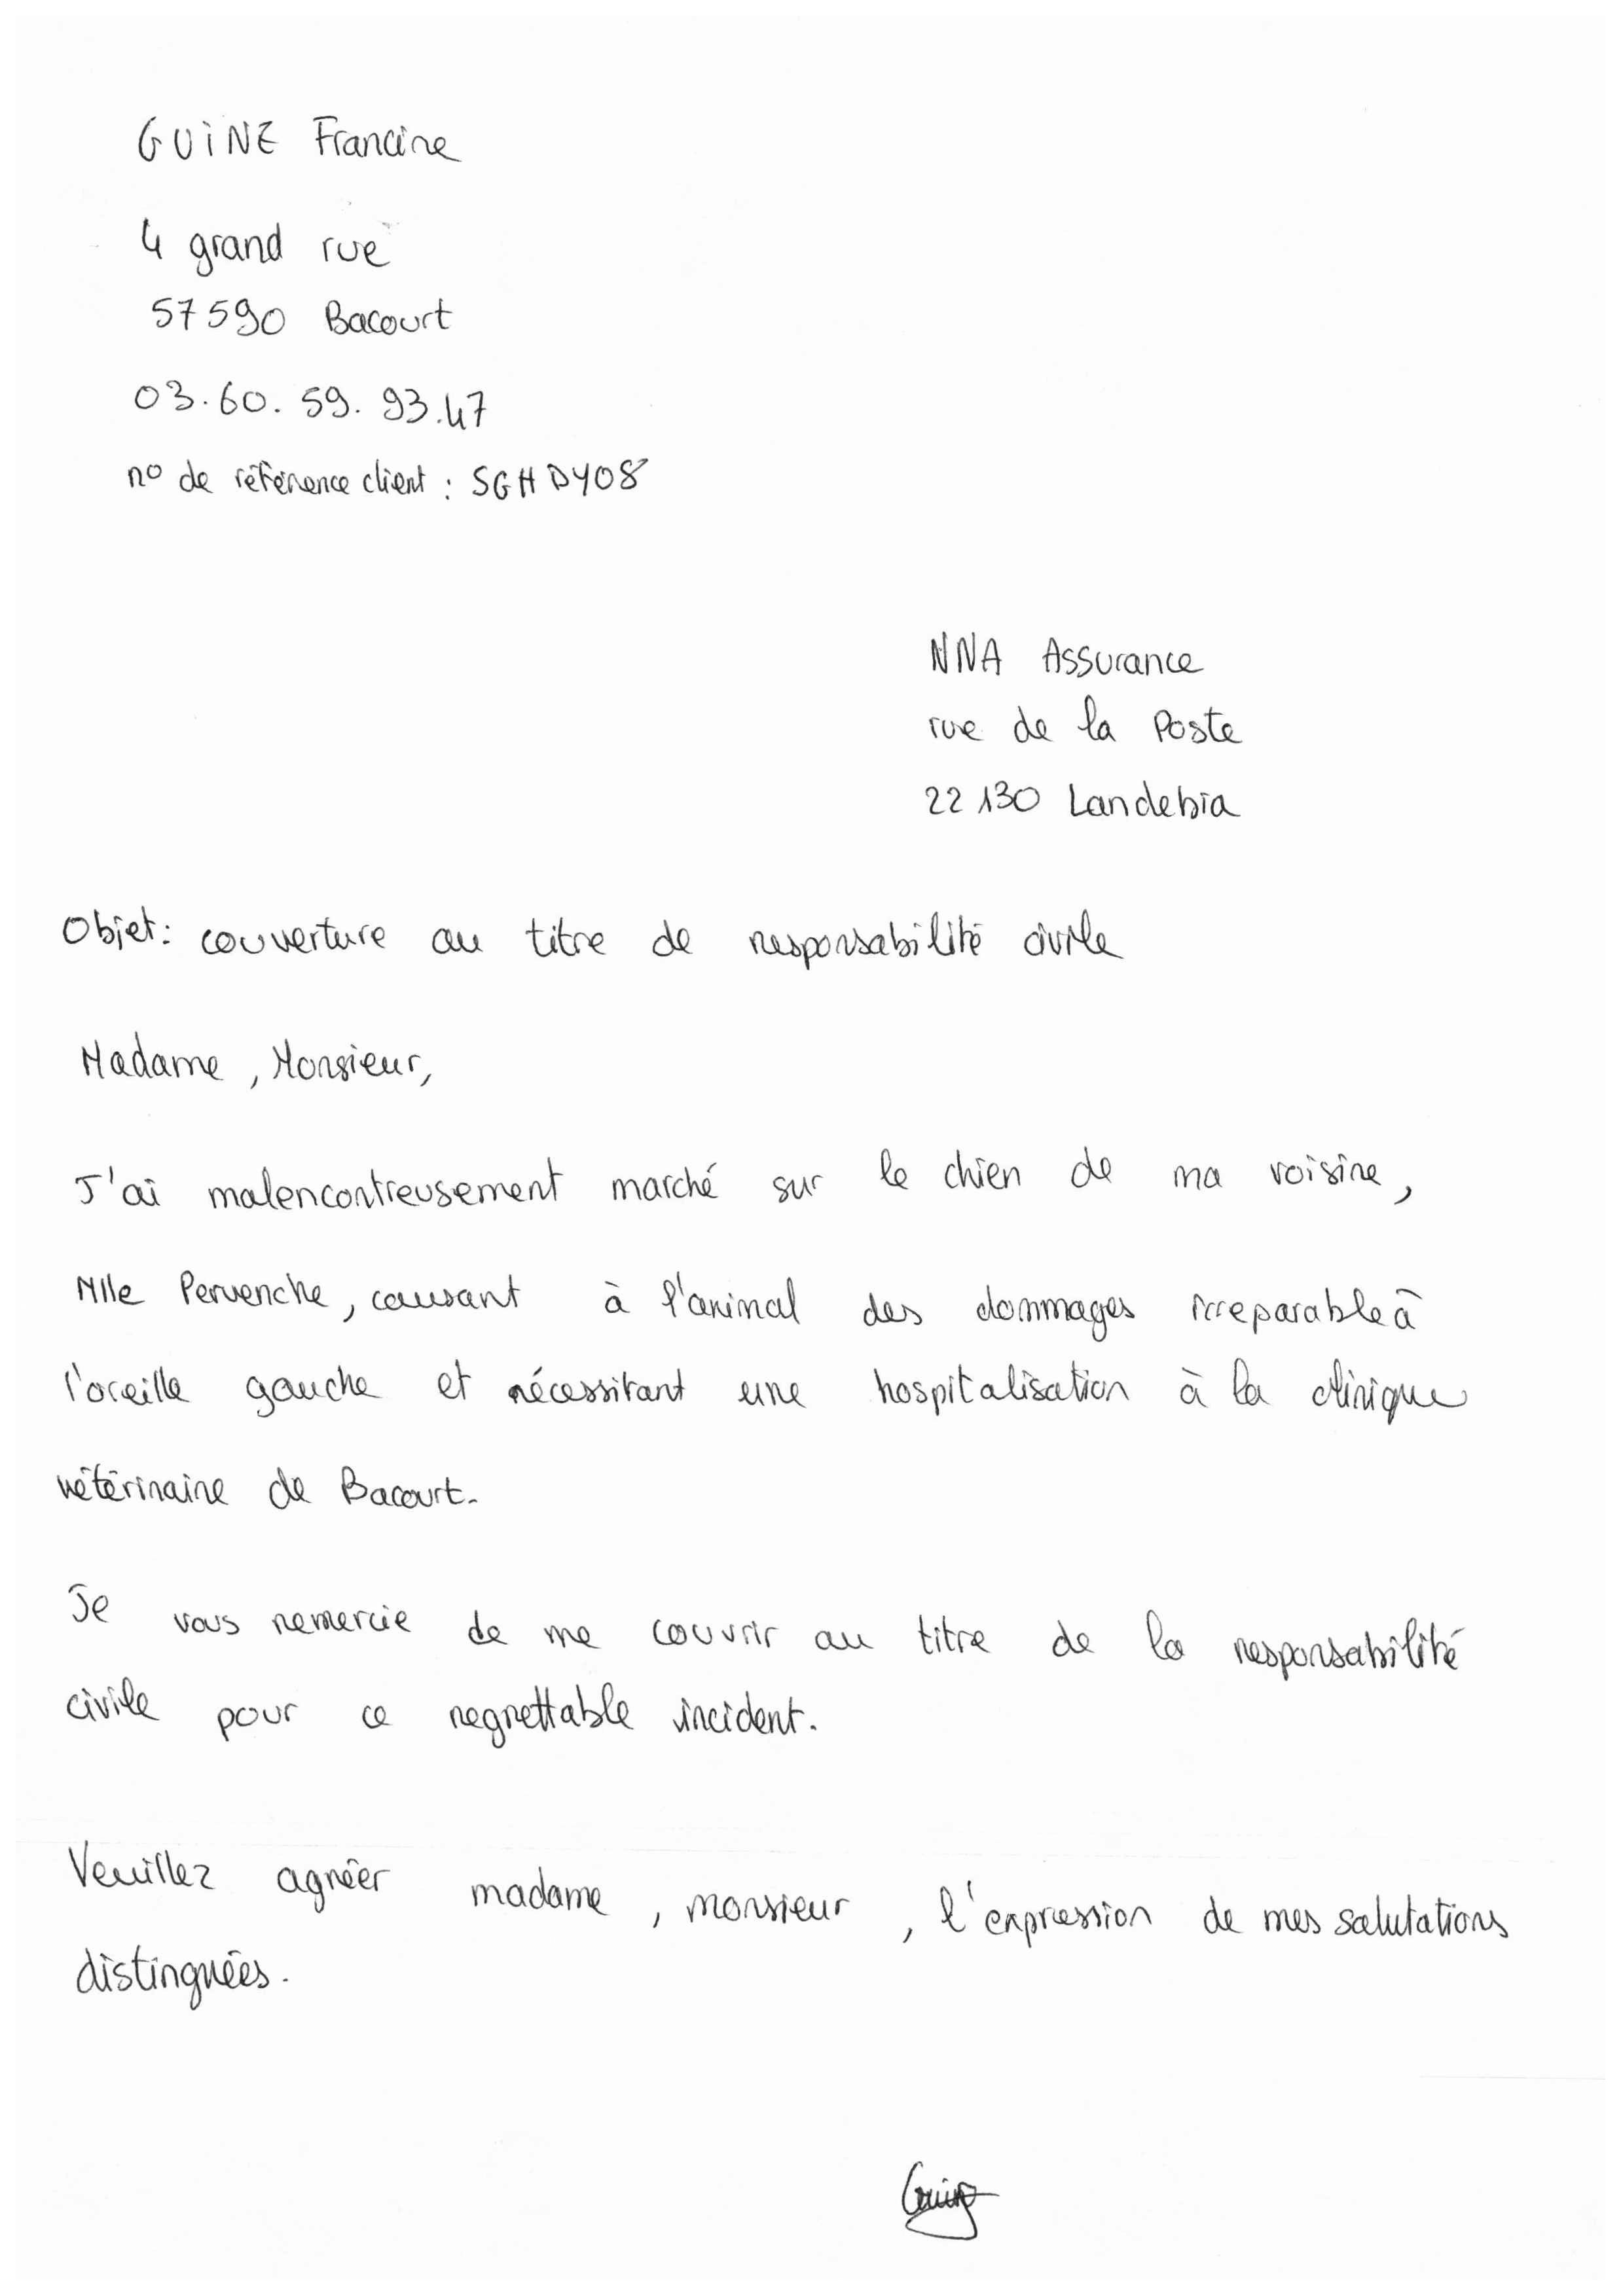 GUINE Francine
4 grand rue
57590 Bacourt
03.60.59.93.47
no de référence client : SGHDY08
NNA Assurance
rue de la Poste
22130 Landebia
Objet : couverture au titre de responsabilité civile
Madame, Monsieur,
J'ai malencontreusement marché sur le chien de ma voisine,
Mlle Pervenche, causant à l'animal des dommages irreparable à
l'oreille gauche et nécessitant une hospitalisation à la clinique
vétérinaire de Bacourt.
Je vous remercie de me couvrir au titre de la responsabilité
civile pour ce regrettable incident.
Veuillez agréer madame, monsieur, l'expression de mes salutations
distinguées.